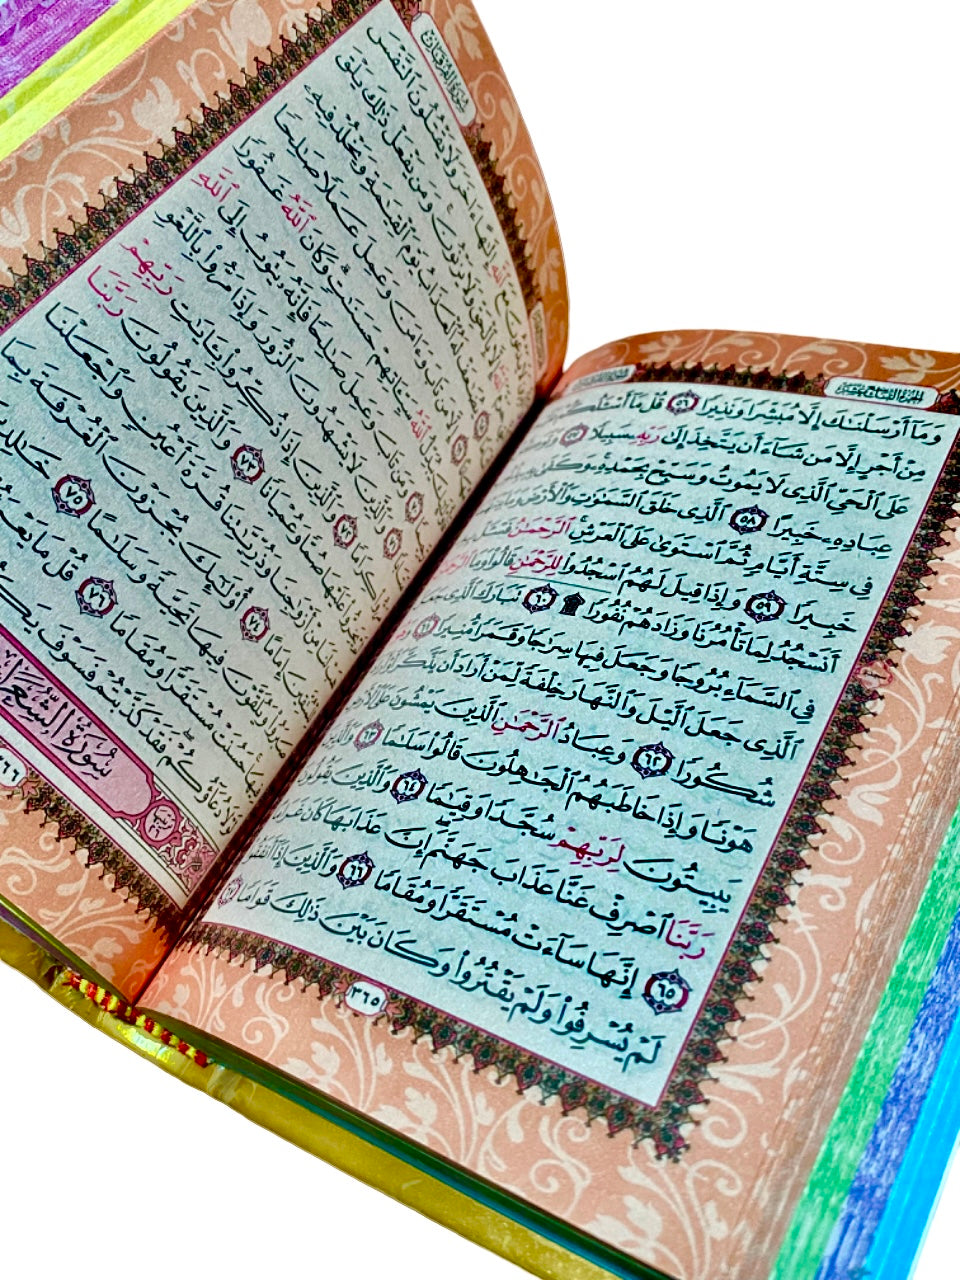 الجزء التاسع عشر
سورة الفرقان
وَمَآ أَرْسَلْنَـٰكَ إِلَّا مُبَشِّرًا وَنَذِيرًا ٥٦ قُلْ مَآ أَسْـَٔلُكُمْ
مِنْ أَجْرٍ إِلَّا مَن شَآءَ أَن يَتَّخِذَ إِلَىٰ رَبِّهِۦ سَبِيلًا ٥٧
عَلَى ٱلْحَىِّ ٱلَّذِى لَا يَمُوتُ وَسَبِّحْ بِحَمْدِهِۦ وَكَفَىٰ
عِبَادِهِۦ خَبِيرًا ٥٨ ٱلَّذِى خَلَقَ ٱلسَّمَـٰوَٰتِ وَٱلْأَرْضَ
فِى سِتَّةِ أَيَّامٍ ثُمَّ ٱسْتَوَىٰ عَلَى ٱلْعَرْشِ ٱلرَّحْمَـٰنُ
خَبِيرًا ٥٩ وَإِذَا قِيلَ لَهُمُ ٱسْجُدُوا۟ لِلرَّحْمَـٰنِ قَالُوا۟ وَمَا
أَنَسْجُدُ لِمَا تَأْمُرُنَا وَزَادَهُمْ نُفُورًا ۩ ٦٠ تَبَارَكَ ٱلَّذِى
فِى ٱلسَّمَآءِ بُرُوجًا وَجَعَلَ فِيهَا سِرَٰجًا وَقَمَرًا مُّنِيرًا ٦١
ٱلَّذِى جَعَلَ ٱلَّيْلَ وَٱلنَّهَارَ خِلْفَةً لِّمَنْ أَرَادَ أَن يَذَّكَّرَ
شُكُورًا ٦٢ وَعِبَادُ ٱلرَّحْمَـٰنِ ٱلَّذِينَ يَمْشُونَ عَلَى
هَوْنًا وَإِذَا خَاطَبَهُمُ ٱلْجَـٰهِلُونَ قَالُوا۟ سَلَـٰمًا ٦٣ وَٱلَّذِينَ
يَبِيتُونَ لِرَبِّهِمْ سُجَّدًا وَقِيَـٰمًا ٦٤ وَٱلَّذِينَ يَقُولُونَ
رَبَّنَا ٱصْرِفْ عَنَّا عَذَابَ جَهَنَّمَ إِنَّ عَذَابَهَا كَانَ
٦٥ إِنَّهَا سَآءَتْ مُسْتَقَرًّا وَمُقَامًا ٦٦ وَٱلَّذِينَ إِذَآ
لَمْ يُسْرِفُوا۟ وَلَمْ يَقْتُرُوا۟ وَكَانَ بَيْنَ ذَٰلِكَ قَوَامًا ٦٧
٣٦٥
سورة الفرقان
ءَاخَرَ وَلَا يَقْتُلُونَ ٱلنَّفْسَ
وَلَا يَزْنُونَ وَمَن يَفْعَلْ ذَٰلِكَ يَلْقَ
ٱلْعَذَابُ يَوْمَ ٱلْقِيَـٰمَةِ وَيَخْلُدْ فِيهِۦ
مَن تَابَ وَءَامَنَ وَعَمِلَ عَمَلًا صَـٰلِحًا
حَسَنَـٰتٍ وَكَانَ ٱللَّهُ غَفُورًا
وَعَمِلَ صَـٰلِحًا فَإِنَّهُۥ يَتُوبُ إِلَى ٱللَّهِ
لَا يَشْهَدُونَ ٱلزُّورَ وَإِذَا مَرُّوا۟ بِٱللَّغْوِ
٧٢ وَٱلَّذِينَ إِذَا ذُكِّرُوا۟ بِـَٔايَـٰتِ رَبِّهِمْ
صُمًّا وَعُمْيَانًا ٧٣ وَٱلَّذِينَ يَقُولُونَ رَبَّنَا
مِنْ أَزْوَٰجِنَا وَذُرِّيَّـٰتِنَا قُرَّةَ أَعْيُنٍ وَٱجْعَلْنَا
إِمَامًا ٧٤ أُو۟لَـٰٓئِكَ يُجْزَوْنَ ٱلْغُرْفَةَ بِمَا
وَيُلَقَّوْنَ فِيهَا تَحِيَّةً وَسَلَـٰمًا ٧٥ خَـٰلِدِينَ
حَسُنَتْ مُسْتَقَرًّا وَمُقَامًا ٧٦ قُلْ مَا يَعْبَؤُا۟
دُعَآؤُكُمْ فَقَدْ كَذَّبْتُمْ فَسَوْفَ يَكُونُ
سُورَةُ ٱلشُّعَرَاءِ
٣٦٦